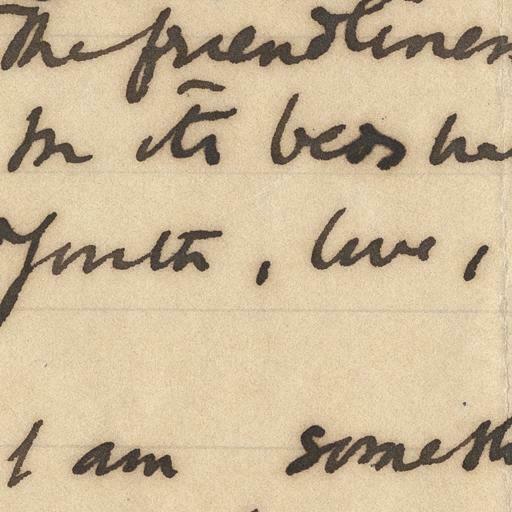 The friendlines
In its
Youth, love,
I am someth